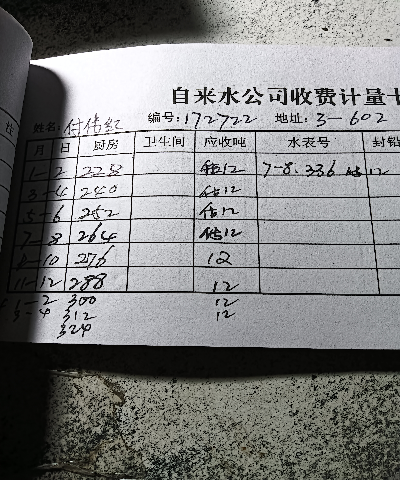 自来水公司收费计量卡
姓名: 付伟红 编号: 172722 地址: 3-602
月 日 厨房 卫生间 应收吨 水表号 封铅
1-2 228 估12 7-8.336 估12
3-4 240 估12
5-6 252 估12
7-8 264 估12
9-10 276 12
11-12 288 12
1-2 300 12
3-4 312 12
324